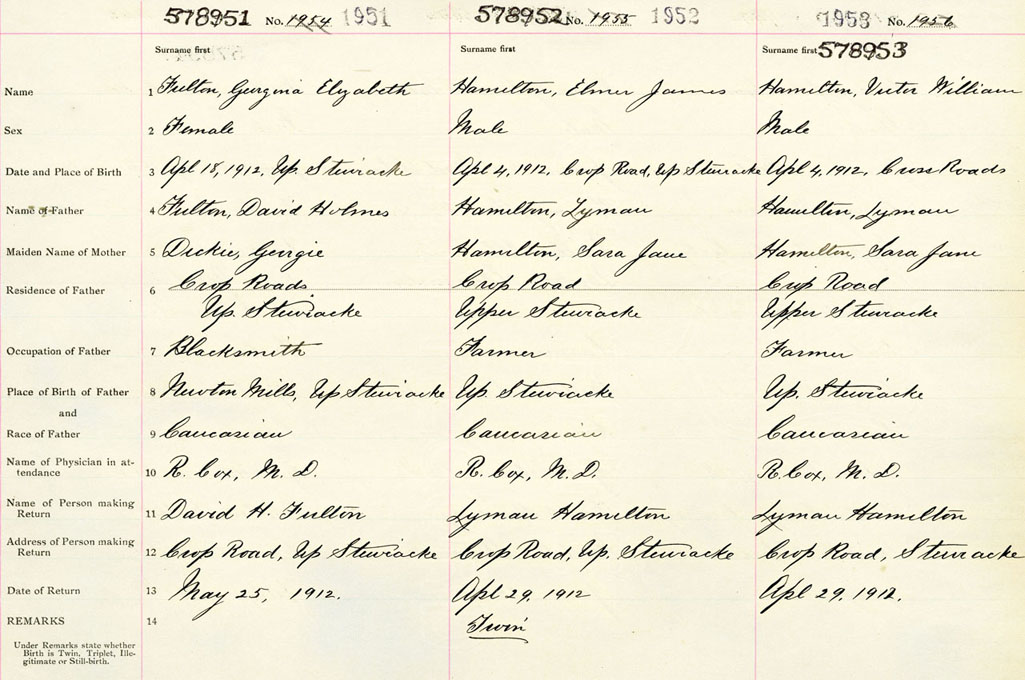 578951 No. 1954 1951 578952 No. 1955 1952 1953 No. 1956
Surname first Surname first Surname first 578953
Name 1 Fulton, Georgina Elizabeth Hamilton, Elmer James Hamilton, Victor William
Sex 2 Female Male Male
Date and Place of Birth 3 Apl 18, 1912, Up. Stewiacke Apl 4, 1912, Crop Road, Up Stewiacke Apl 4, 1912, Cross Roads
Name of Father 4 Fulton, David Holmes Hamilton, Lyman Hamilton, Lyman
Maiden Name of Mother 5 Dickie, Georgie Hamilton, Sara Jane Hamilton, Sara Jane
Residence of Father 6 Crop Roads Crop Road Crop Road
Up. Stewiacke Upper Stewiacke Upper Stewiacke
Occupation of Father 7 Blacksmith Farmer Farmer
Place of Birth of Father 8 Newton Mills, Up Stewiacke Up. Stewiacke Up. Stewiacke
and
Race of Father 9 Caucasian Caucasian Caucasian
Name of Physician in at-
tendance 10 R. Cox, M. D. R. Cox, M. D. R. Cox, M. D.
Name of Person making
Return 11 David H. Fulton Lyman Hamilton Lyman Hamilton
Address of Person making
Return 12 Crop Road, Up Stewiacke Crop Road, Up. Stewiacke Crop Road, Stewiacke
Date of Return 13 May 25, 1912. Apl 29, 1912 Apl 29, 1912.
REMARKS 14 Twin
Under Remarks state whether
Birth is Twin, Triplet, Ille-
gitimate or Still-birth.